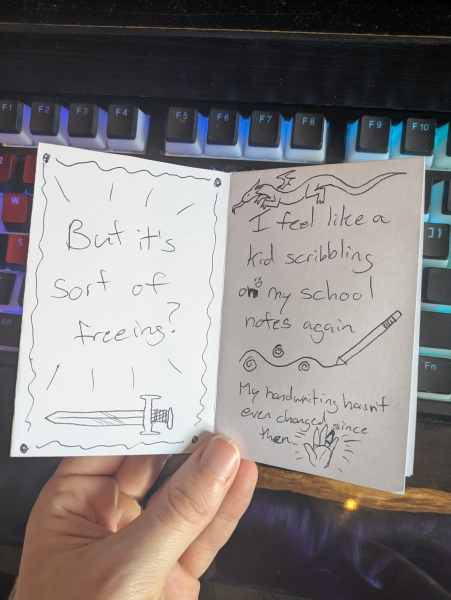 F1 F2 F3 F4 F5 F6 F7 F8 F9 F10
But it's
sort of
freeing?
I feel like a
kid scribbling
on my school
notes again
My handwriting hasn't
even changed since
then.
W
S
Alt
}]
Fn